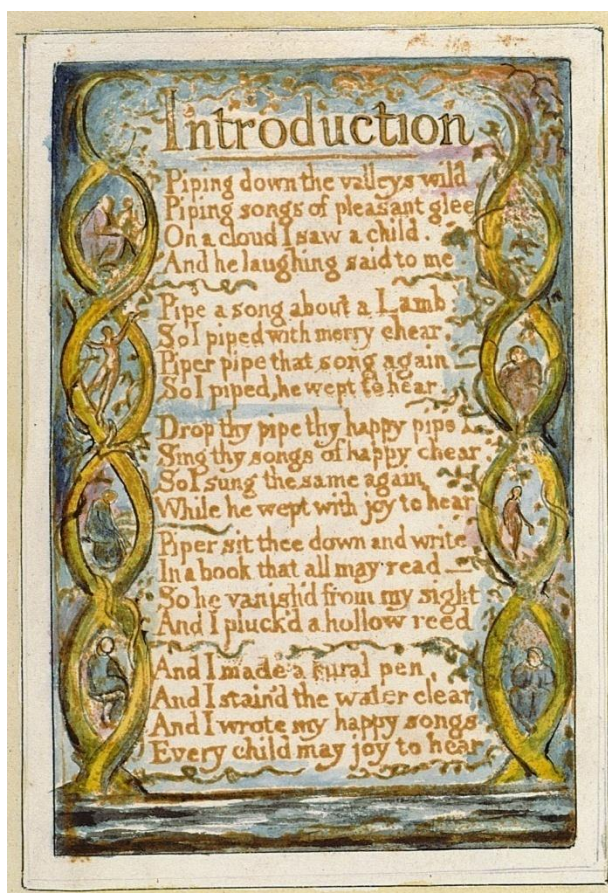 Introduction
Piping down the valleys wild
Piping songs of pleasant glee
On a cloud I saw a child.
And he laughing said to me
Pipe a song about a Lamb:
So I piped with merry chear
Piper pipe that song again
So I piped, he wept to hear.
Drop thy pipe thy happy pipe
Sing thy songs of happy chear
So I sung the same again
While he wept with joy to hear
Piper sit thee down and write
In a book that all may read
So he vanish'd from my sight
And I pluck'd a hollow reed
And I made a rural pen,
And I stain'd the water clear
And I wrote my happy songs
Every child may joy to hear